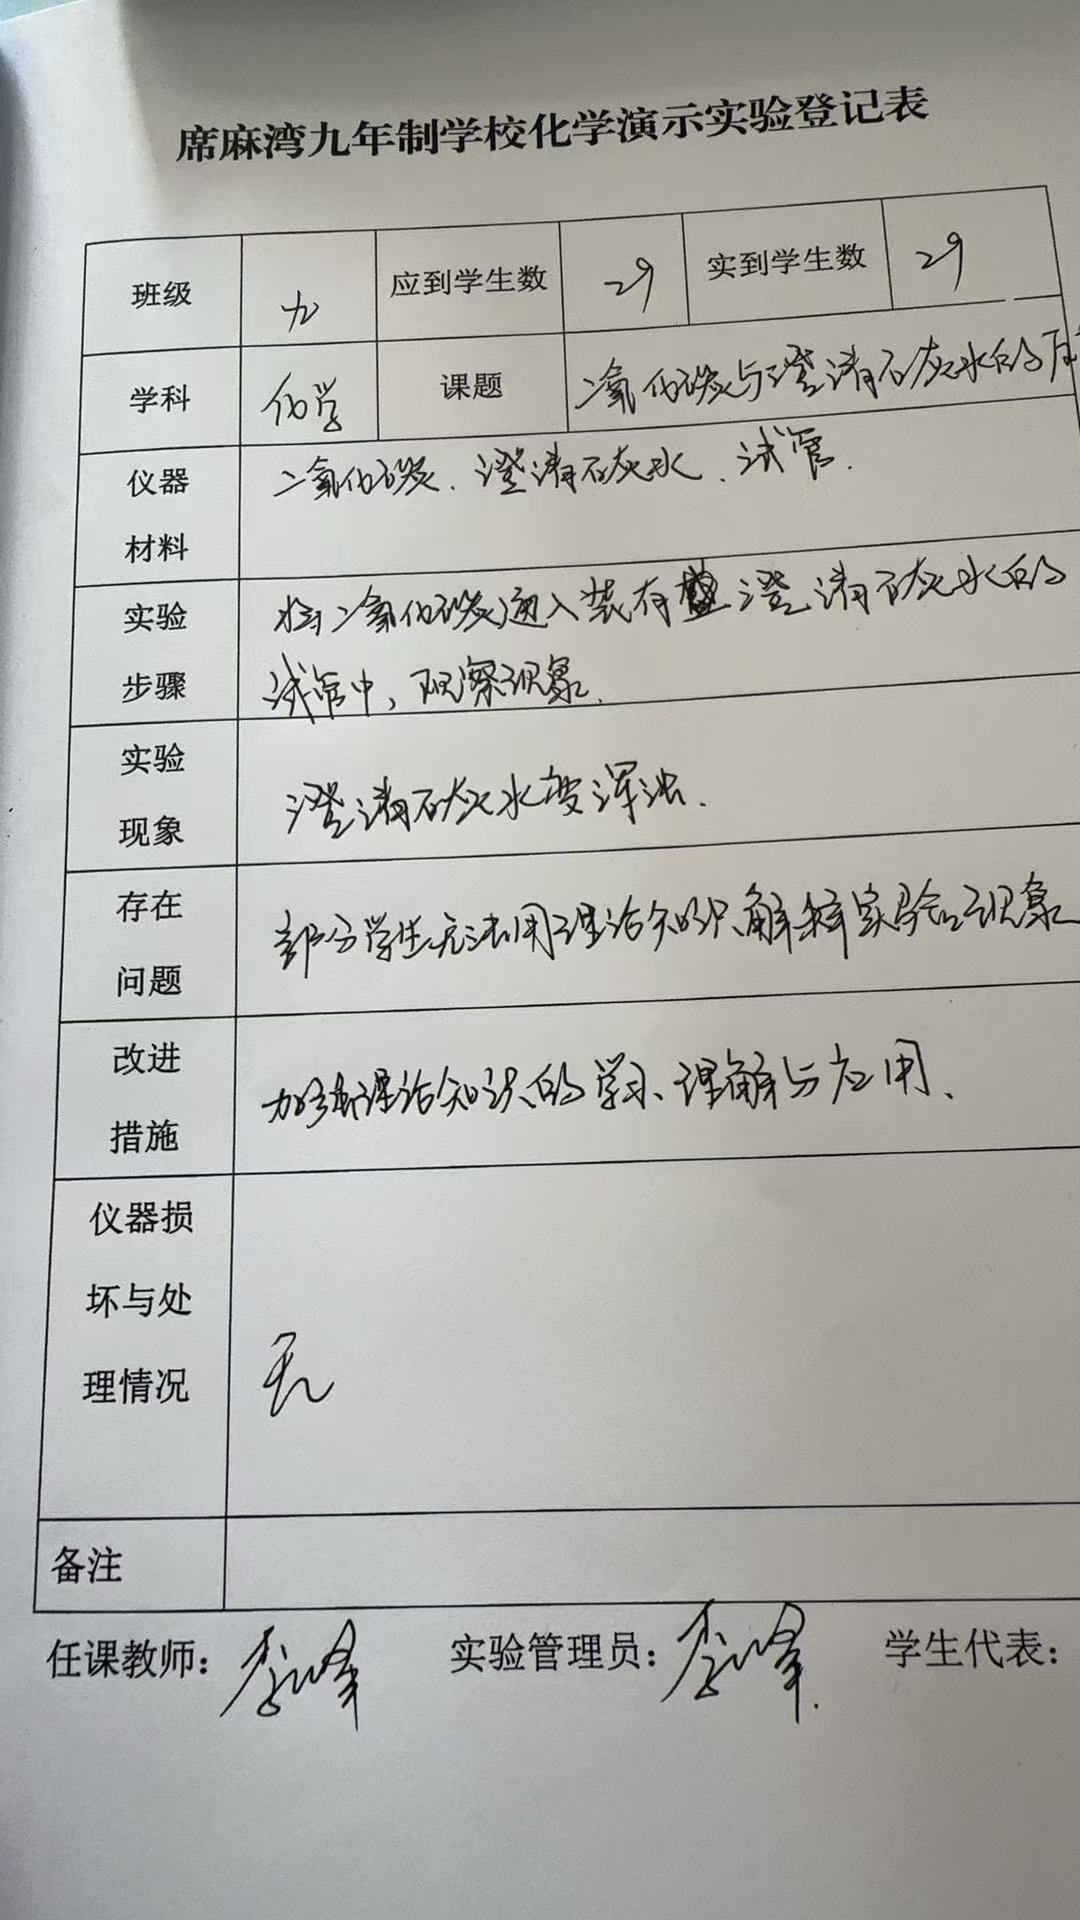 席麻湾九年制学校化学演示实验登记表
班级 九 应到学生数 29 实到学生数 29
学科 化学 课题 二氧化碳与澄清石灰水的
仪器 二氧化碳、澄清石灰水、试管.
材料
实验 将二氧化碳通入装有 澄清石灰水的
步骤 试管中,观察现象.
实验
现象 澄清石灰水变浑浊.
存在 部分学生无法用理论知识解释实验现象
问题
改进 加强理论知识的学习、理解与应用、
措施
仪器损
坏与处
理情况 无
备注
任课教师: 李峰 实验管理员: 李峰. 学生代表: